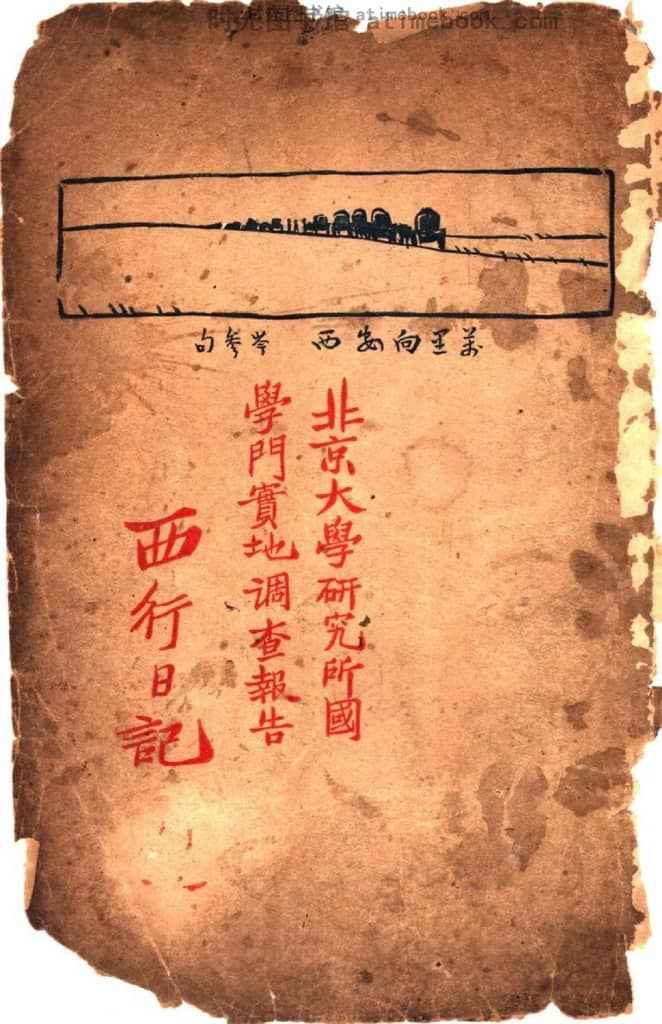 时光图书馆 atimebook.com
萬里向安西 岑參句
北京大學研究所國
學門實地调查報告
西行日記